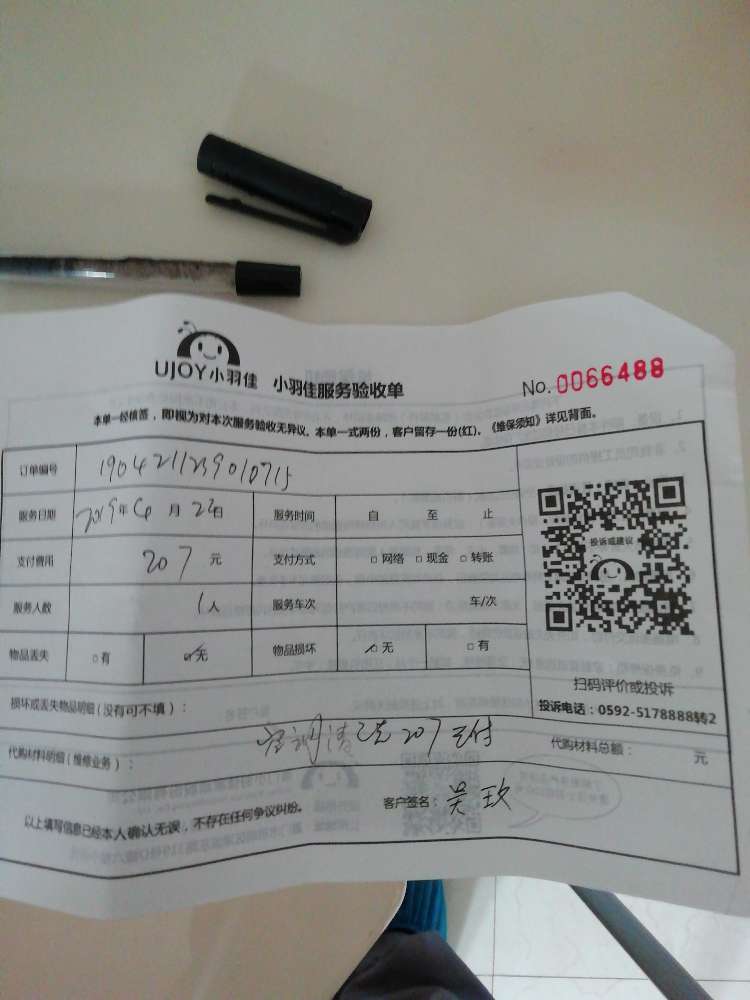 UJOY小羽佳 小羽佳服务验收单 No. 0066488
本单一经核签，即视为对本次服务验收无异议。本单一式两份，客户留存一份(红)。《维保须知》详见背面。
订单编号 1904211239010715
服务日期 2019年 6 月 23日 服务时间 自 至 止
支付费用 207 元 支付方式 □ 网络 □ 现金 □ 转账
服务人数 1人 服务车次 车/次
物品丢失 □ 有 ☑ 无 物品损坏 ☑ 无 □ 有
投诉或建议
扫码评价或投诉
投诉电话：0592-5178888转2
损坏或丢失物品明细 (没有可不填)：
代购材料明细 (维修业务)： 207 支付 代购材料总额： 元
以上填写信息已经本人确认无误，不存在任何争议纠纷。 客户签名：吴玫